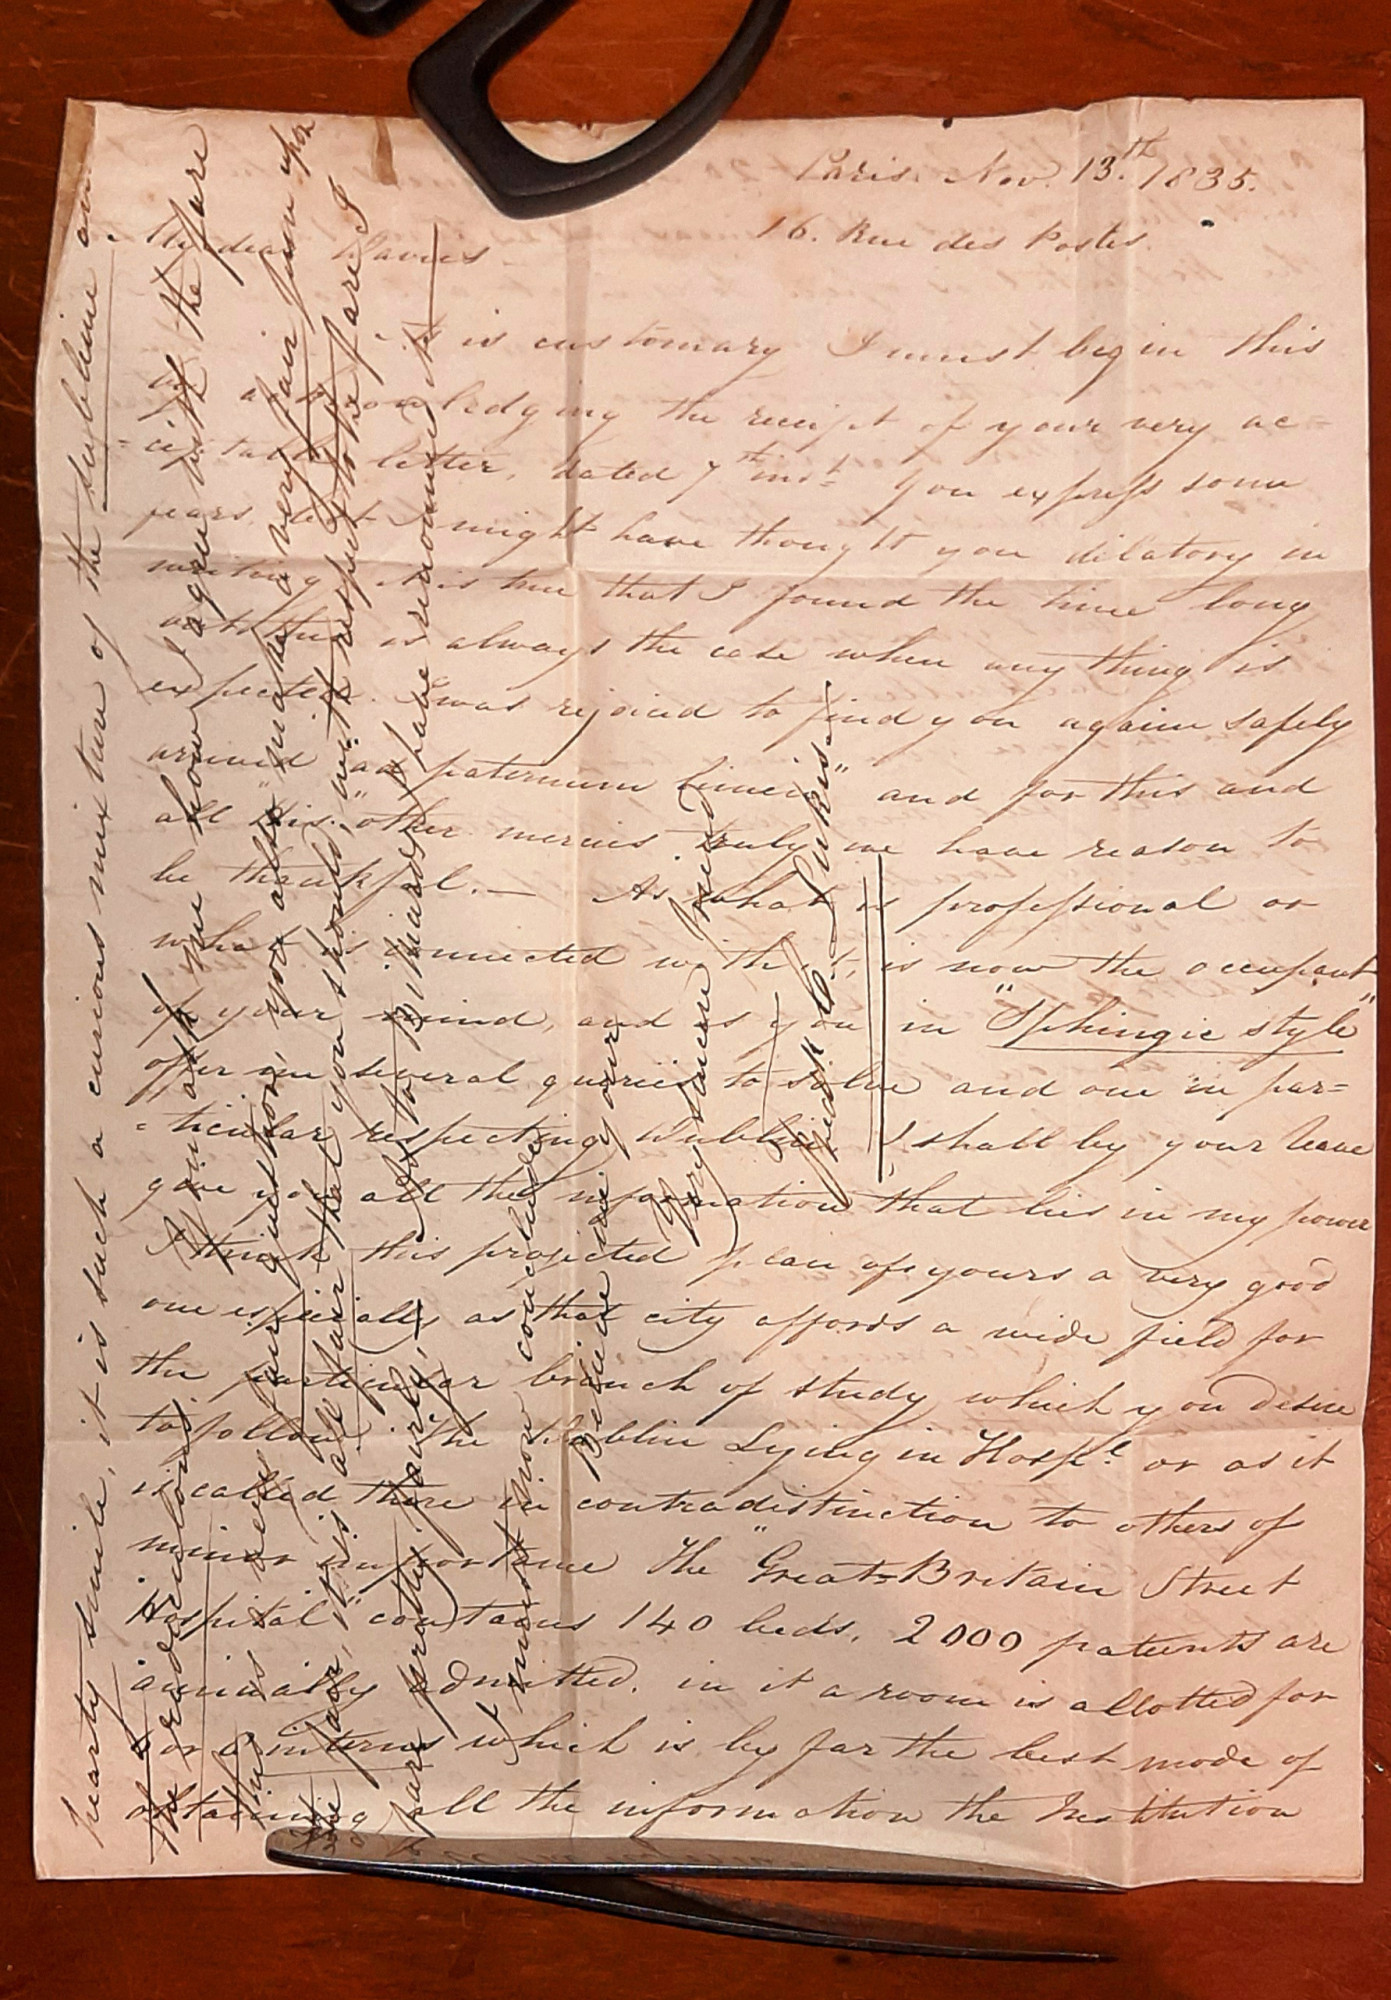 Paris. Nov. 13.th 1835.
16. Rue des Postes.
My dear Davies
As it is customary I must begin this
by acknowledging the receipt of your very ac=
=ceptable letter, dated 7th inst. You express some
fears lest I might have thought you dilatory in
writing it is true that I found the time long
but this is always the case when any thing is
expected. I was rejoiced to find you again safely
arrived "ad paternum limen" and for this and
all "His" other mercies truly we have reason to
be thankful. — As what is professional or
what is connected with it, is now the occupant
of your mind, and as you in "Sphingic style"
offer me several queries to solve and one in par=
=ticular respecting Dublin I shall by your leave
give you all the information that lies in my power
I think this projected plan of yours a very good
one especially as that city affords a wide field for
the particular branch of study which you desire
to follow. The Dublin Lying in Hospl. or as it
is called there in contradistinction to others of
minor importance The "Great=Britain Street
Hospital" contains 140 beds. 2000 patients are
annually admitted. in it a room is allotted for
or interns which is by far the best mode of
obtaining all the information the Institution
hearty smile, it is such a curious mixture of the sublime and
the rediculous.
you ask me how I agree with the fare
In this very fair question, you also "make" a very fair pun upon
the fair, it is all fair that you should, with respect to the fare I
fare pretty fairly, — As to Billiards I have renounced it —
I must now conclude
Believe me your
Very sincere friend
Fredk. C. Lukis.